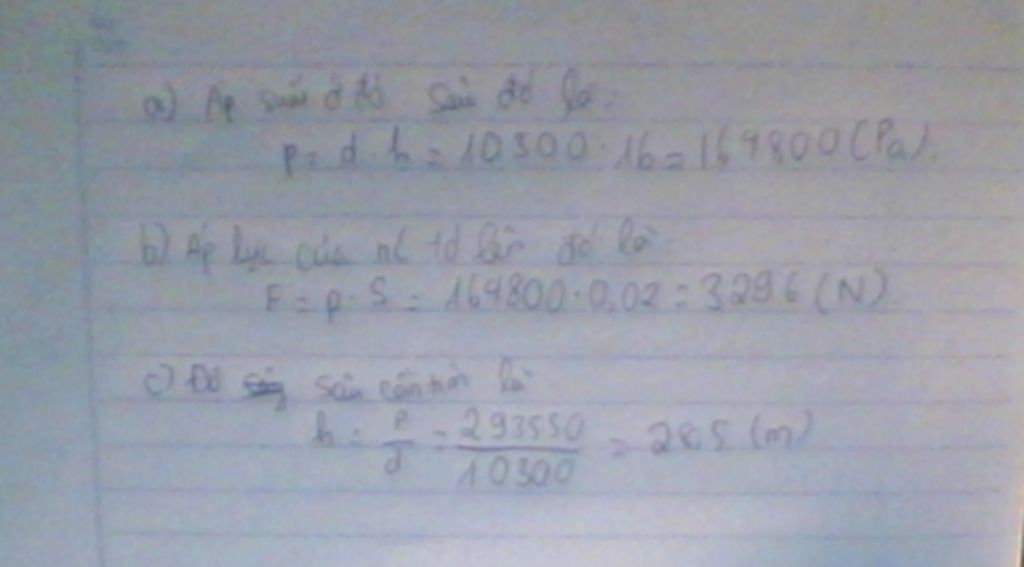 a) Áp suất ở độ sâu đó là:
p = d . h = 10300 . 16 = 164800 (Pa).
b) Áp lực của nc td lên đó là:
F = p . S = 164800 . 0,02 = 3296 (N)
c) Độ sâu cần tìm là
h = p/d = 293550/10300 = 28,5 (m)